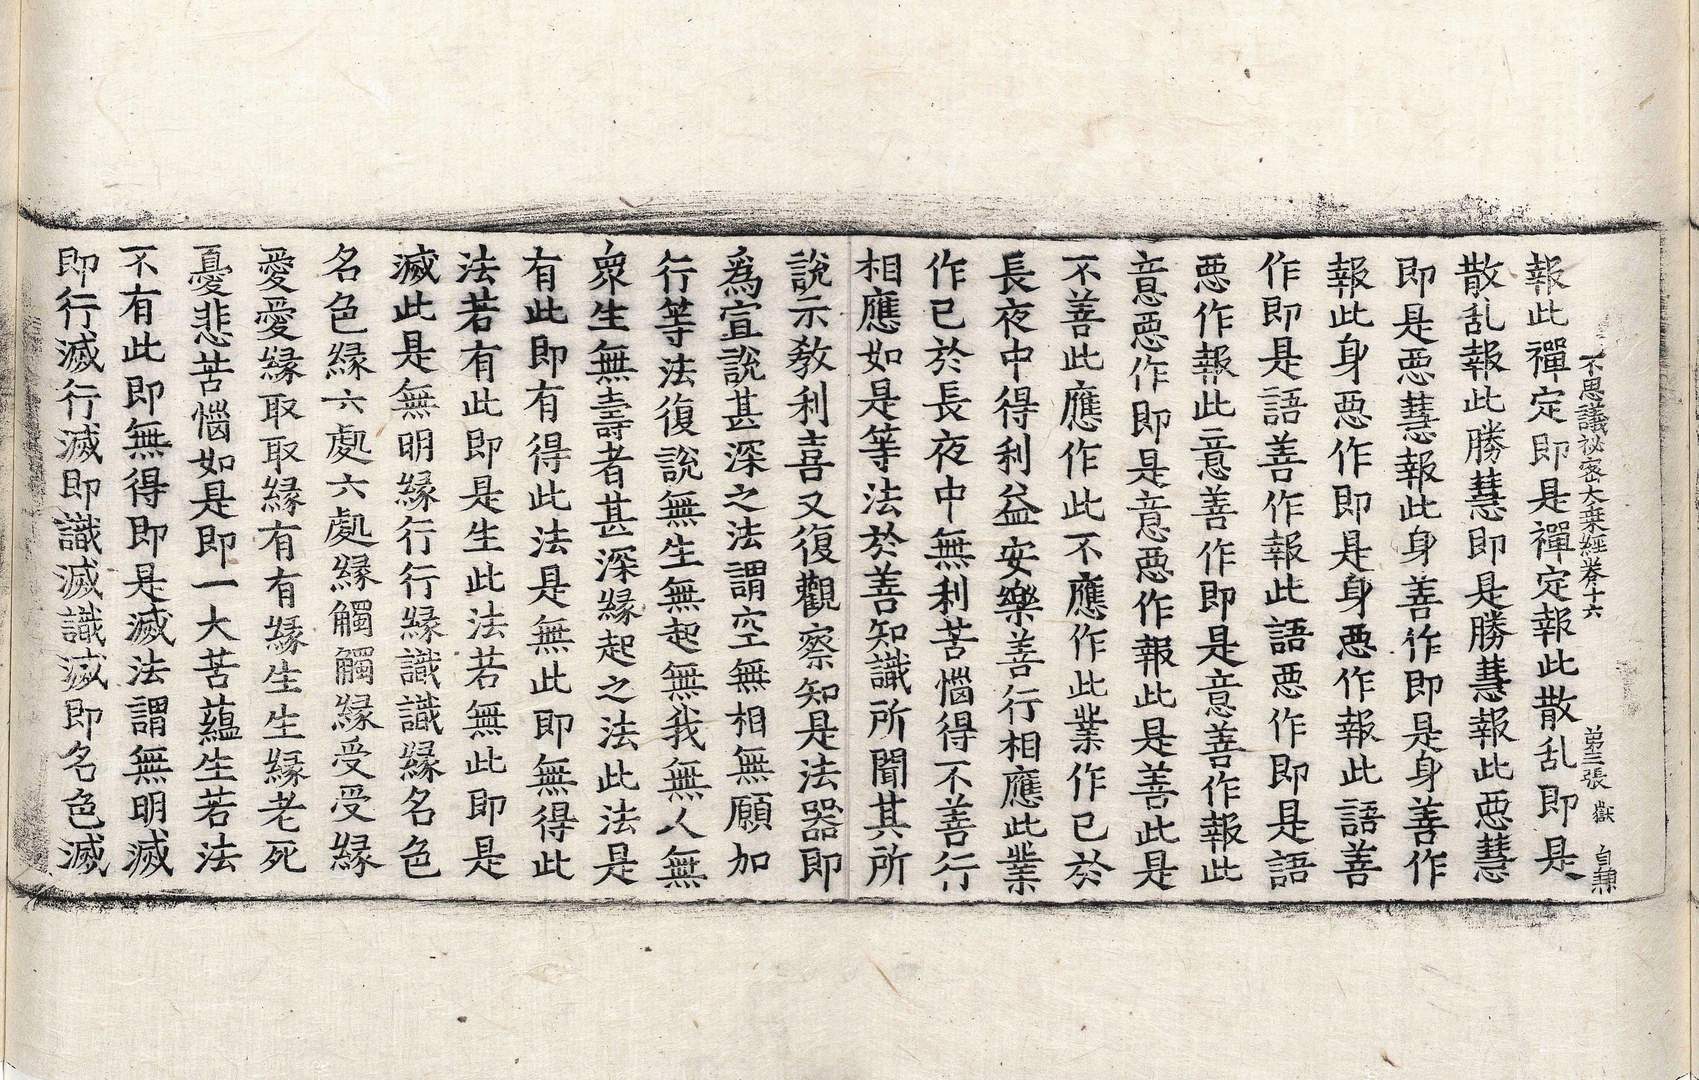 不思議祕密大乗經卷十六 苐三張 嶽
報此禪定即是禪定報此散乱即是
散乱報此勝慧即是勝慧報此悪慧
即是悪慧報此身善作即是身善作
報此身悪作即是身悪作報此語善
作即是語善作報此語悪作即是語
悪作報此意善作即是意善作報此
意悪作即是意悪作報此是善此是
不善此應作此不應作此業作已於
長夜中得利益安樂善行相應此業
作已於長夜中無利苦惱得不善行
相應如是等法於善知識所聞其所
說示教利喜又復觀察知是法器即
爲宣說甚深之法謂空無相無願加
行等法復說無生無起無我無人無
衆生無壽者甚深縁起之法此法是
有此即有得此法是無此即無得此
法若有此即是生此法若無此即是
滅此是無明縁行行縁識識縁名色
名色縁六處六處縁觸觸縁受受縁
愛愛縁取取縁有有縁生生縁老死
憂悲苦惱如是即一大苦蘊生若法
不有此即無得即是滅法謂無明滅
即行滅行滅即識滅識滅即名色滅